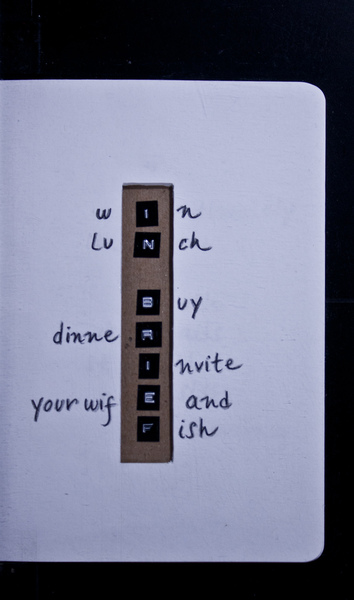 wIn
LuNch
Buy
dinneR
Invite
your wifE and
Fish